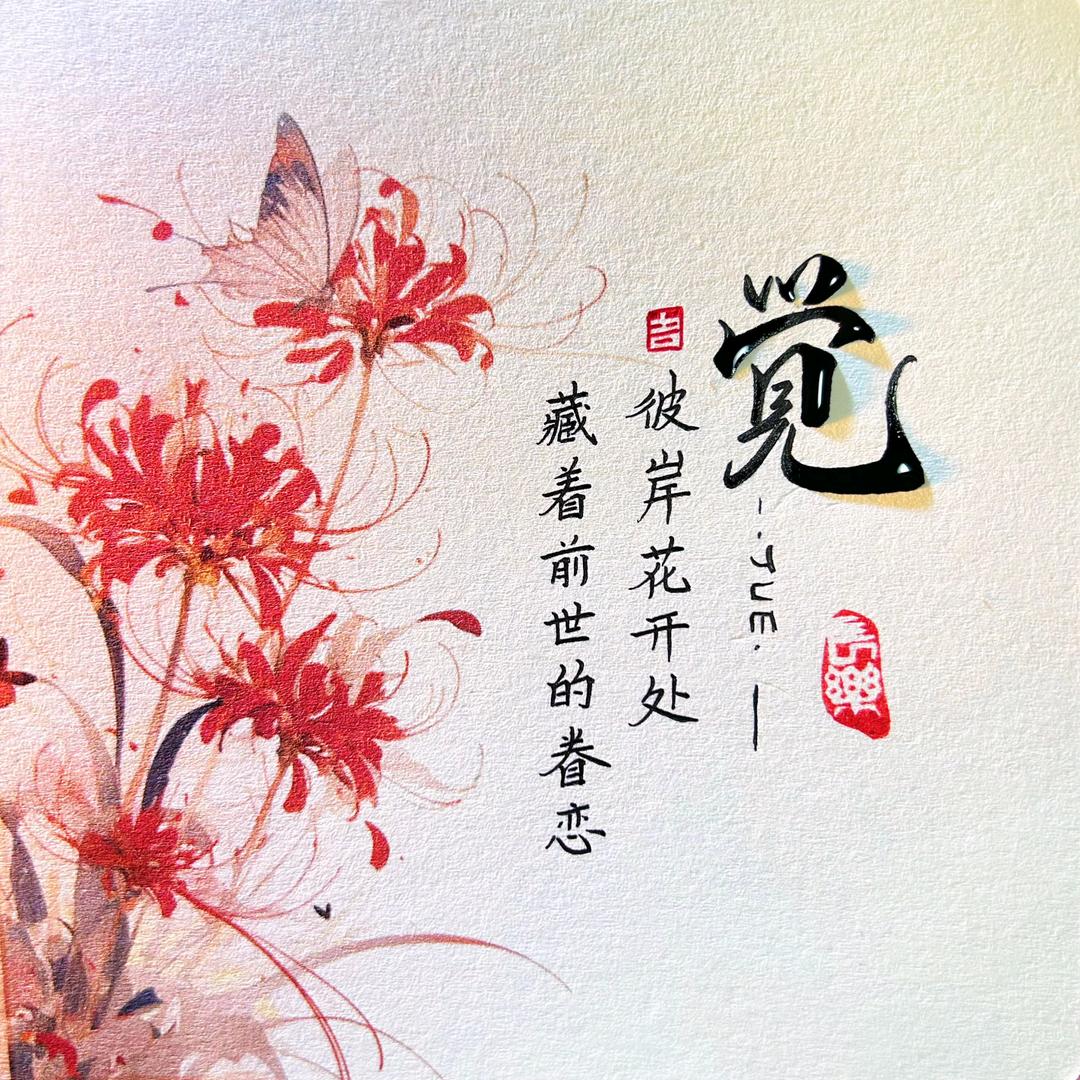 觉
JUE
吉
彼岸花开处
藏着前世的眷恋